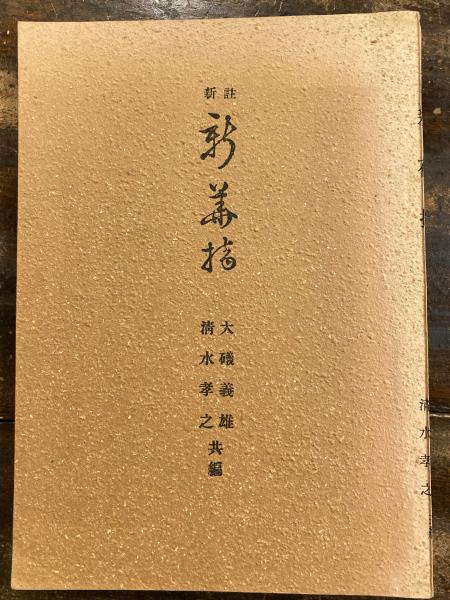 新註
新華摘
大礒義雄
清水孝之
共編
清水孝之